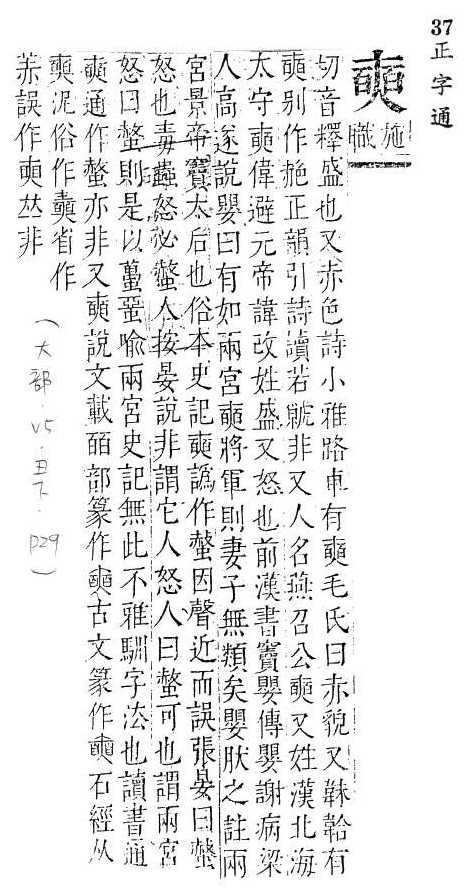 37 正字通
奭 施職
切音釋盛也又赤色詩小雅路車有奭毛氏曰赤貌又韎韐有
奭别作赩正韻引詩讀若虩非又人名燕召公奭又姓漢北海
太守奭偉避元帝諱改姓盛又怒也前漢書竇嬰傳嬰謝病梁
人高遂說嬰曰有如兩宮奭將軍則妻子無類矣嬰肰之註兩
宮景帝竇太后也俗本史記奭譌作螫因聲近而誤張晏曰螫
怒也毒蟲怒必螫人按晏說非謂它人怒人曰螫可也謂兩宮
怒曰螫則是以蠆喻兩宮史記無此不雅馴字法也讀書通
奭通作螫亦非又奭說文載皕部篆作奭古文篆作石經从
奭泥俗作省作
誤作𠀤非
（大部·V5·丑下·P29）